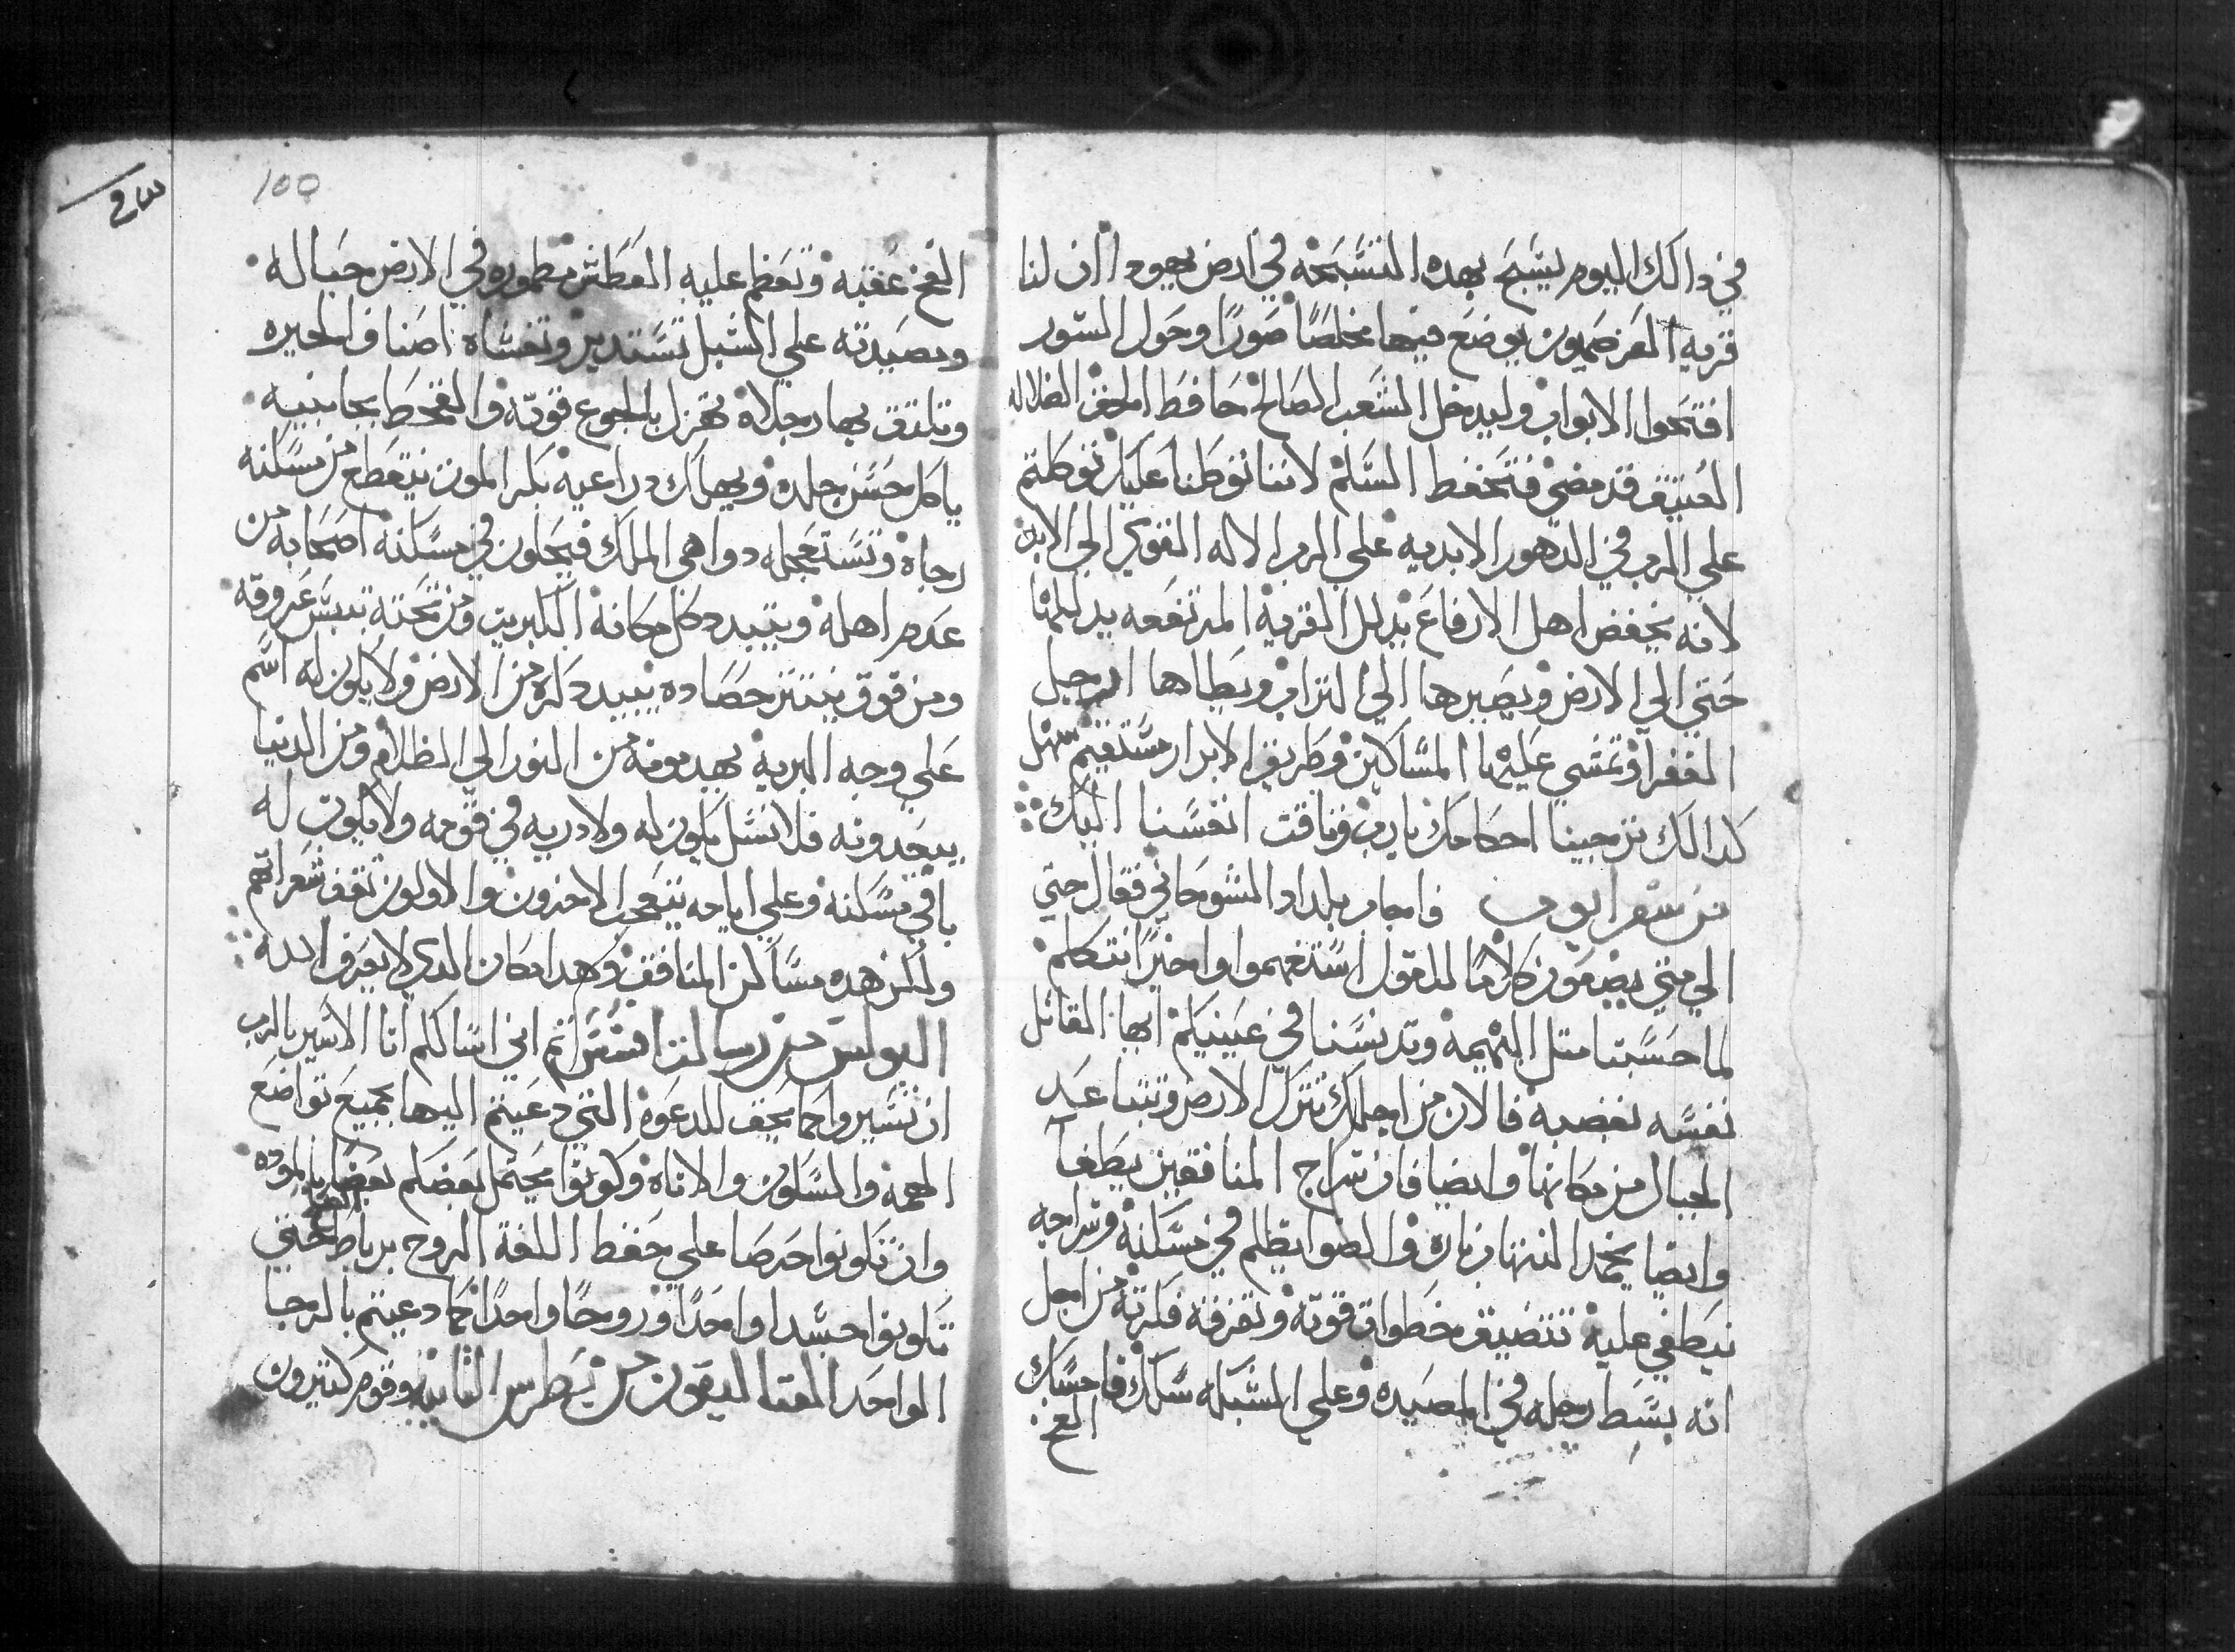 في دالك اليوم يسبح بهده التسبحه في ارض يهودا ان لنا
قريه يوضع فيها مخلصًا صورًا وحول السور
افتحوا الابواب وليدخل الشعب الصالح حافظ الحق الضلاله
العتيق قد مضي فتحفظ السلم لاننا توطنا عليك توكلتم
علي الرب في الدهور الابديه علي الرب الاله القوي الي الابد
لانه يخفض اهل الارفاع يدلل القريه المرتفعه يدللها
حتي الي الارض ويصيرها الي التراب ويطاها ارجل
الفقرآ وتمشي عليها المساكين وطريق الابرار مستقيم سهل
كدالك ترجينا احكامك يارب وتاقت انفسنا اليك
من سفر ايوب فاجاب بلداد الشوحاني فقال حتي
الي متي يضعون كلامًا للقول استفهموا واخيرًا نتكلم
لما حسبنا متل البهيمه وتدنسنا في عينيكم ايها القاتل
نفسه بغضبه فالان من اجلك تترك الارض وتتباعد
الجبال من مكانها وايضا فان سراج المنافقين يطفا
وايضا يخمد التهاب ناره والضو ايظلم في مسكنه وسراجه
ينطفي عليه تتضيق خطوات قوته وتفرقه فكرته من اجل
انه بسط رجله في المصيده وعلي الشبكه سلك فامسك
الفخ
100
الفخ عقبه وتعظم عليه العطش مطموره في الارض حباله
ومصيدته علي السبل تستدير وتغشاه اصناف الحيره
وتلتف بها رجلاه تهزل بالجوع قوته والقحط بجانبيه
ياكل حسن جلده ويهلك دراعيه بكر الموت ينقطع من مسكنه
رجاه وتستعجله دواهي الملك فيحلون في مسكنه اصحابه من
عدم اهله ويتبدد كل مكانه الكبريت ومن تحته تيبس عروقه
ومن فوق ينتتر حصاده يبيد دكره من الارض ولا يكون له اسم
علي وجه البريه يهدمونه من النور الي الظلام ومن الدنيا
يبعدونه فلا نسل يكون له ولا دريه في قومه ولا يكون له
باقي مسكنه وعلي ايامه يتعجب الاخرون والاولون تقف شعراتهم
ولكن هده مساكن المنافق وهدا مكان الدي لا يعرف الله
البولس من رسالته افسس اني اسالكم انا الاسير بالرب
ان تسيروا كما يحق للدعوه التي دعيتم اليها بجميع تواضع
الهمه والسكون والاناه وكونوا يحتمل بعضكم بعضا بالموده
وان تكونوا حرصا علي حفظ اللفة الروح برباط حتي
تكونوا جسدا واحدًا وروحًا واحدًا كما دعيتم بالرجا
الواحد القتاليقون من بطرس التانيه وقوم كتيرون